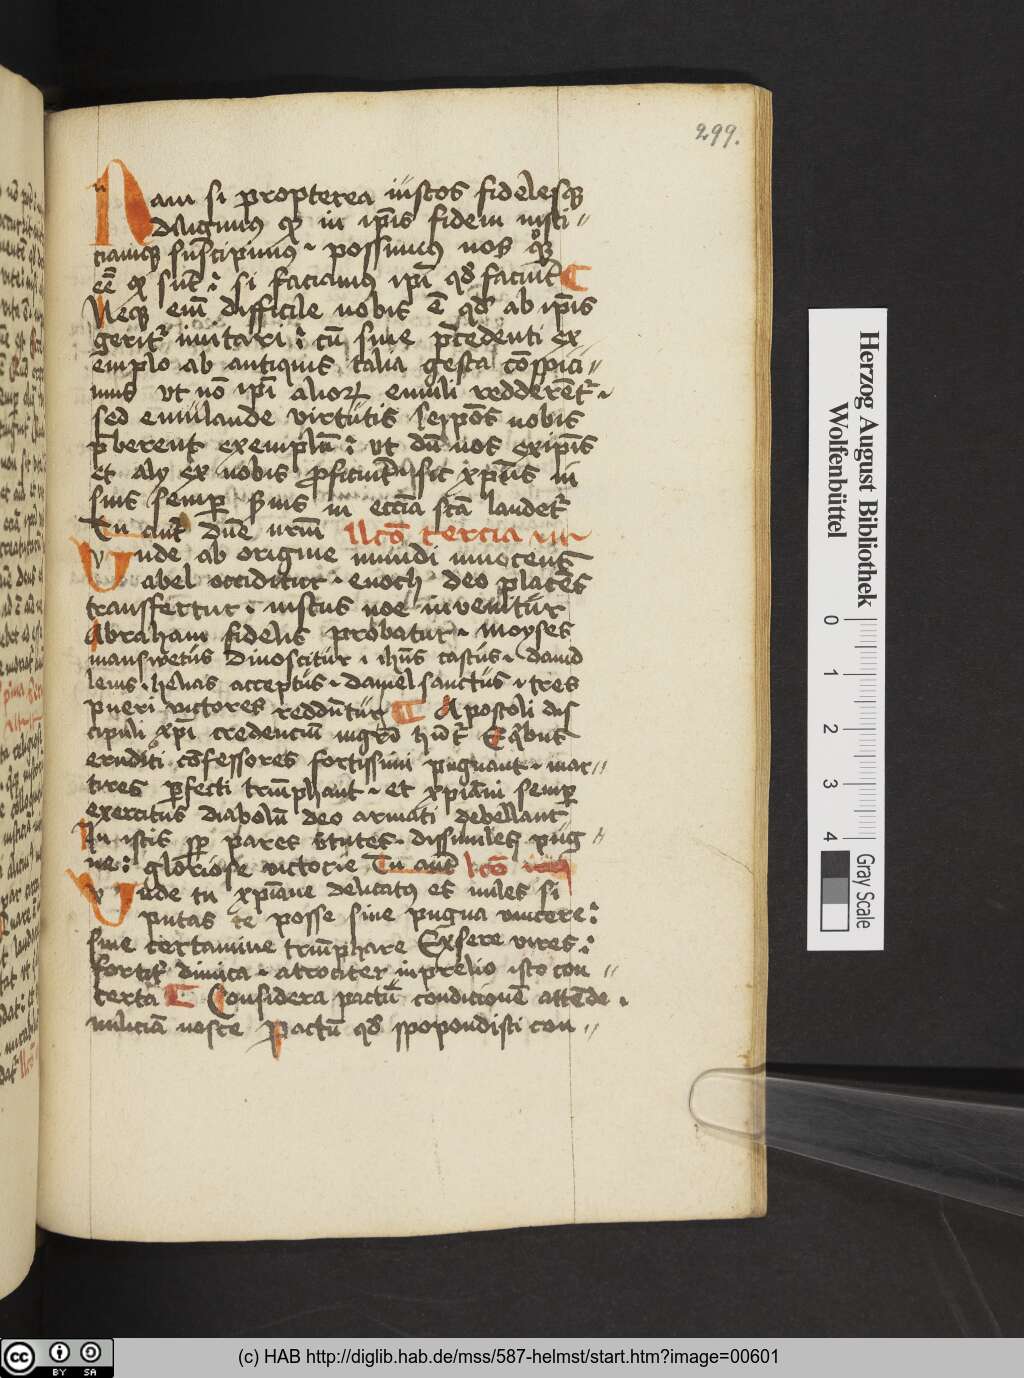 299.
Nam si propterea iustos fidelesq̄
diligimus q̄ in ip̄is fidem iusti〃
ciamq̄ suscipimus · possumus nos q̊q̄
eē̄ q̄ sūt : si faciamus ip̄i qd̄ faciūt
Neq̄ eīm difficile nobis ē qd̄ ab ip̄is
gerit᷑ imitari : cū sine p̄cedenti ex
emplo ab antiquis talia gesta cōspici〃
mus vt nō ip̄i alioꝝ emuli redderēt᷑ ·
sed emulande virtutis seip̄os nobis
p̄berent exemplū : vt dū nos ex ip̄is
et alij ex nobis ꝓficiunt sic xp̄us in
suis semp̄ s̄uis in ecc̄ia sc̄a laudet᷑
Tu aūt dn̄e nr̄m lc̄o tercia
Unde ab origine mundi innocens
abel occiditur · enoch deo placēs
transfertur · iustus noe invenitur
Abraham fidelis probatur · Moyses
mansuetus dinoscitur · ih̄us castus · dauid
lenis · helias acceptus · daniel sanctus · tres
pueri victores reddūtur Apostoli dis
cipuli xp̄i credenciū mgr̄i hn̄t᷑ Eq̄bus
eruditi cōfessores fortissimi pugnant · mar〃
tires p̄fecti triūphant · et xp̄iāni semp̄
exercitus diabolū deo armati debellant
In istis sp̄ pares v̄tutes · dissimiles pug〃
ne : gloriose victorie Tu aūt lc̄o
Unde tu xp̄iane delicatus es miles si
putas te posse sine pugna vincere :
sine certamine triūphare Exsere vires :
fortit᷑ dimica · atrociter in prelio isto con〃
certa Considera pactū condicionē attēde ·
miliciā nosce Pactū qd̄ spopondisti con〃
Herzog August Bibliothek
Wolfenbüttel
0 1 2 3 4
Gray Scale
cc BY SA
(c) HAB http://diglib.hab.de/mss/587-helmst/start.htm?image=00601